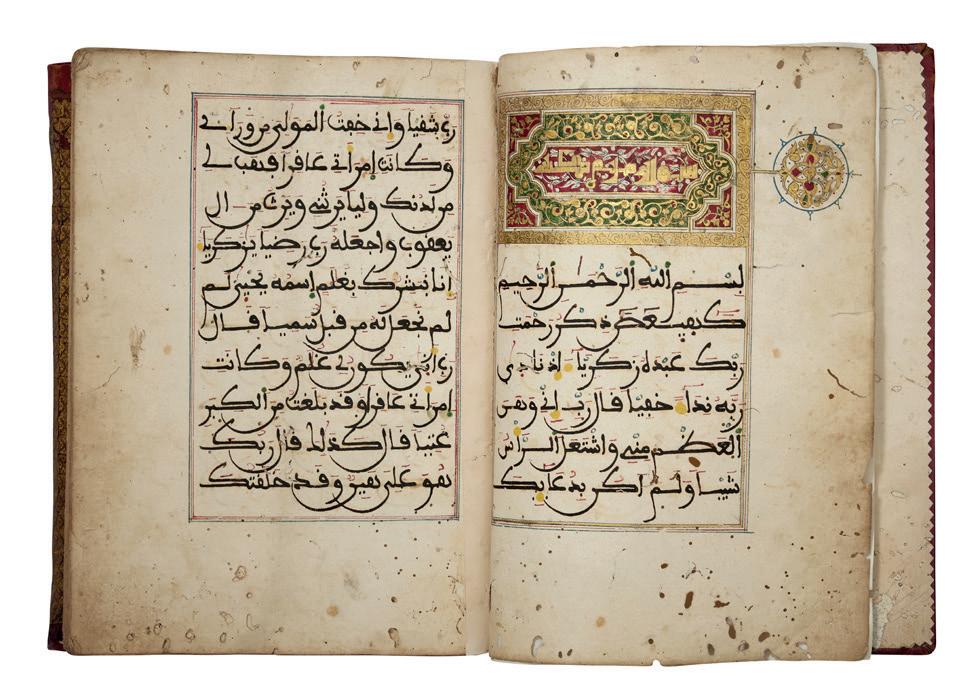 سورة مريم
بسم الله الرحمن الرحيم
كهيعص ذكر رحمت
ربك عبده زكريا إذ نادى
ربه نداء خفيا قال رب إني وهن
العظم مني واشتعل الرأس
شيبا ولم أكن بدعائك
رب شقيا وإني خفت المولي من ورائي
وكانت امرأتي عاقرا فهب لي
من لدنك وليا يرثني ويرث من ال
يعقوب واجعله رب رضيا يزكريا
انا نبشرك بغلم اسمه يحيى لم
لم نجعل له من قبل سميا قال
رب انى يكون لي غلم وكانت
امرأتي عاقرا وقد بلغت من الكبر
عتيا قال كذلك قال ربك
هو علي هين وقد خلقتك